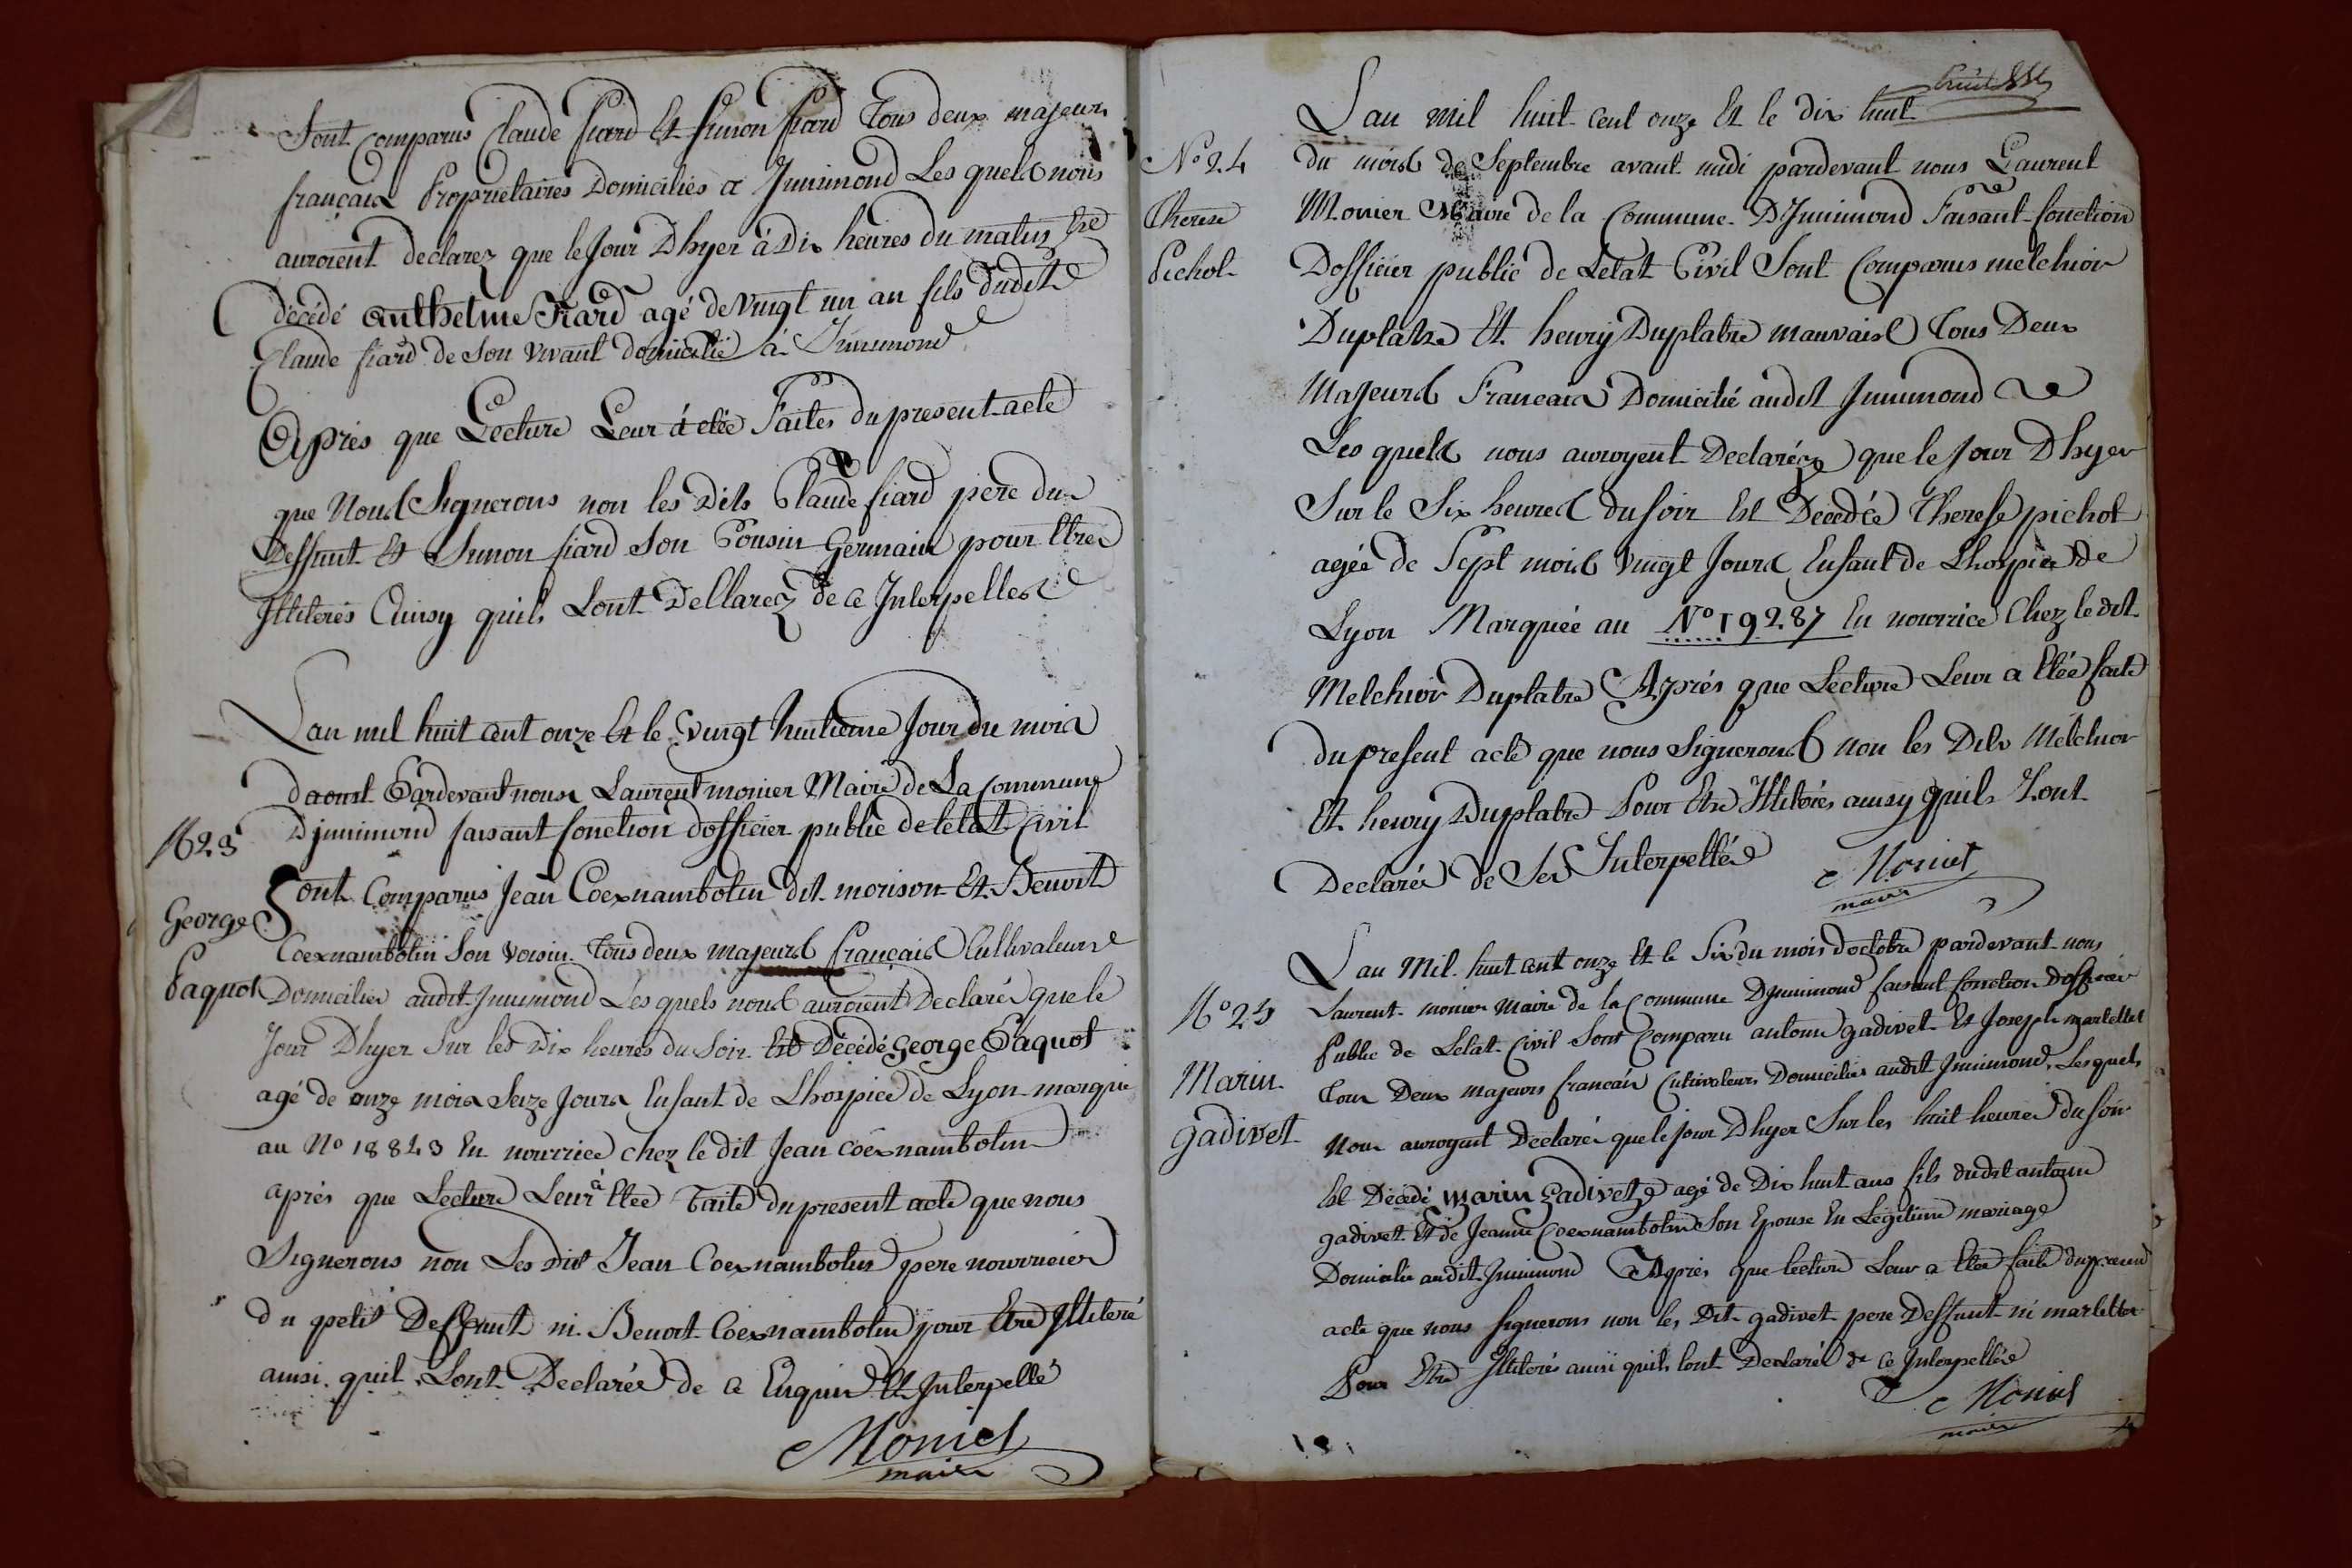 Sont comparus Claude fiard Et Simon fiard Tous deux majeurs
français Proprietaires Domiciliés a Jnnimond Les quels nous
auroient declarez que le Jour Dhyer à Dix heures du matin Est
décédé anthelme Fiard agé de vingt un an fils dudit
Claude fiard de Son vivant domicilié à Jnnimond
Après que Lecture Leur à etée Faites du present acte
que Nous Signerons non les Dits Claude fiard pere du
Deffunt Et Simon fiard Son Cousin Germain pour Etre
Jlliterés Ainsy quils Lont Dellarez de ce Jnterpelles
Lan mil huit cent onze Et le vingt huitieme Jour du mois
daoust Pardevant nous Laurent monier Maire de La commune
Djnnimond faisant fonction dofficier public de letat Civil
N23
Sont Comparus Jean Coexnambolin dit morison Et Benoit
George
Coexnambolin Son voisin Tous deux majeurs français Cultivateurs
Paquot
Domicilies audit Jnnimond Les quels nous auroient Declarés que le
Jour Dhyer Sur les Dix heures du Soir Est Décédé George Paquot
agé de onze mois Seize Jours Enfant de Lhospice de Lyon marqué
au No 18843 En nourrice chez le dit Jean coexnambolin
après que Lecture Leur à Etée Faite du present acte que nous
Signerons non Les Dit Jean Coexnambolin pere nourricier
du petit Deffunt ni Benoit Coexnambolin pour Etre Jlliteré
ainsi quil Lont Declarés de ce Enquis Et Jnterpellé
Monier
maire
huit
Lan mil huit cent onze Et le dix huit
No 24
du mois de Septembre avant midi pardevant nous Laurent
Therese
Monier Maire de la Commune DJnnimond Faisant fonction
Pichol
Dofficier public de Letat Civil Sont Comparus melchior
Duplatre Et henry Duplatre mauvais Tous Deux
Majeurs Francais Domicilié audit Jnnimond
Les quels nous auroyent Declaréz que le Jour Dhyer
Sur le Six heures du soir Est Décédée Therese pichol
agée de Sept mois vingt Jours Enfant de Lhospice de
Lyon Marquée au No 19287 En nourrice Chez le dit
Melchior Duplatre Après que Lecture Leur a Etée faite
du present acte que nous Signerons non les Dits Melchior
Et henry Duplatre Pour Etre Jlliterés ainsy quils Lont
Declarés de Ses Jnterpellés
Monier
maire
Lan Mil huit cent onze Et le Six du mois doctobre pardevant nous
No 25
Laurent monier Maire de la Commune Djnnimond faisant fonction Dofficier
Public de Letat Civil Sont Comparu antoine gadivet Et Joseph martellet
Marin
Tous Deux majeurs francais Cultivateurs Domicilies audit Jnnimond Les quels
gadivet
Nous auroyent Declarés que le jour Dhyer Sur les huit heures du Soir
Est Décédé marin gadivet agé de Dix huit ans fils dudit antoine
gadivet Et de Jeanne Coexnambolin Son Epouse En Legitime mariage
Domicilie audit Jnnimond Après que lecture Leur a Etée faite du present
acte que nous signerons non les Dit gadivet pere Deffunt ni martellet
Pour Etre Jlliterés ainsi quils lont Declarés de ce Jnterpellés
Monier
maire